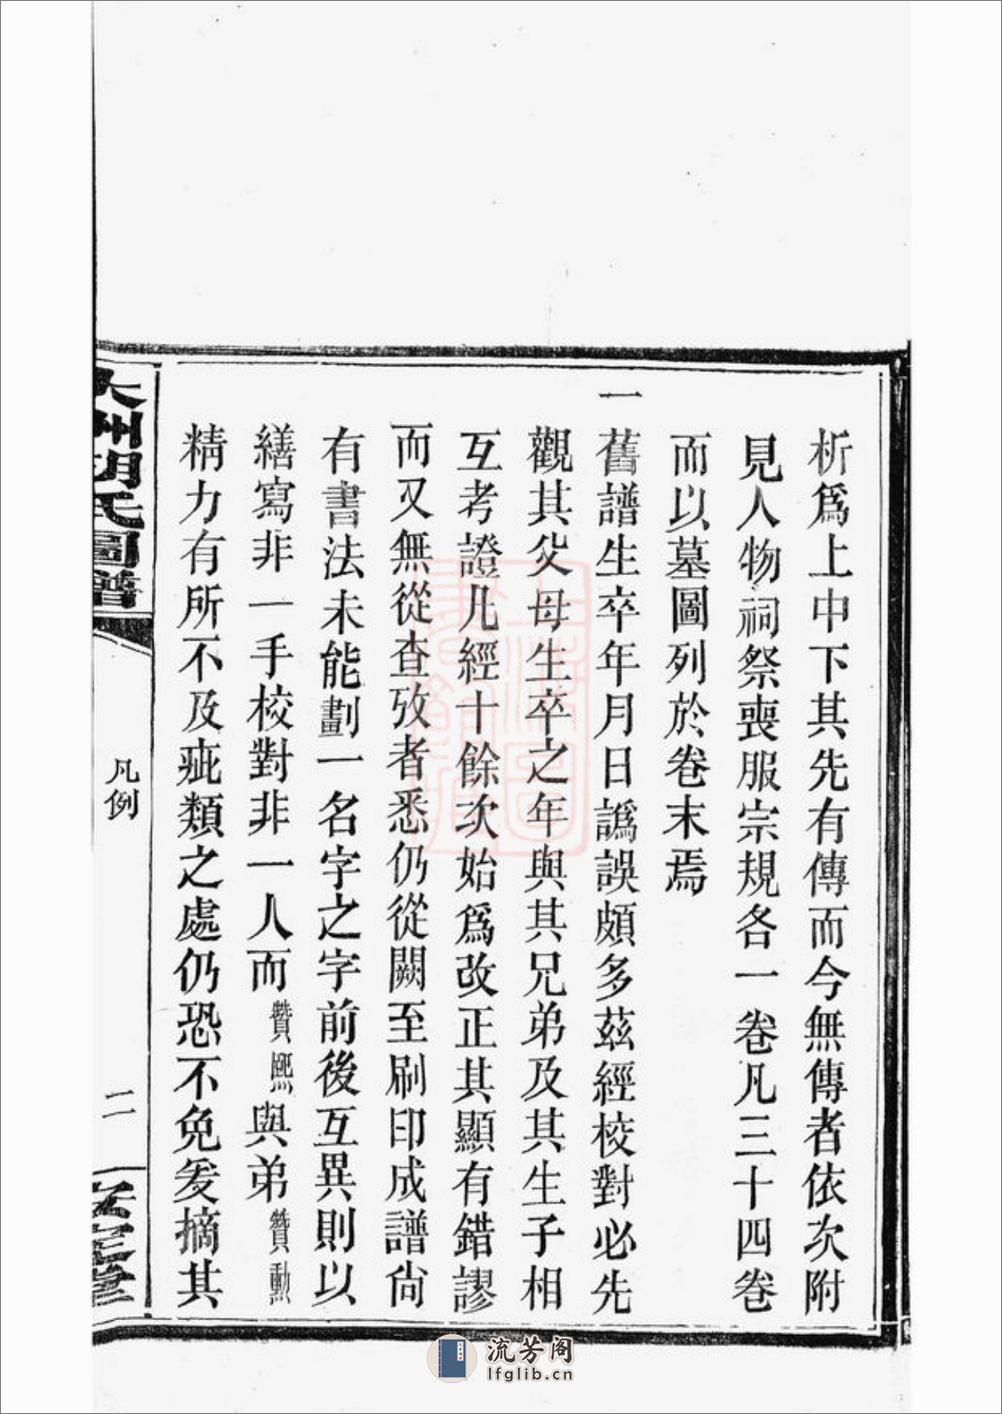 析爲上中下其先有傳而今無傳者依次附
見人物祠祭喪服宗規各一卷凡三十四卷
而以墓圖列於卷末焉
一舊譜生卒年月日譌誤頗多茲經校對必先
觀其父母生卒之年與其兄弟及其生子相
互考證凡經十餘次始爲改正其顯有錯謬
而又無從查攷者悉仍從闕至刷印成譜尙
有書法未能劃一名字之字前後互異則以
繕寫非一手校對非一人而贊熙與弟贊勳
精力有所不及疵類之處仍恐不免爰摘其
胡氏圖譜
凡例
二
流芳阁
lfglib.cn